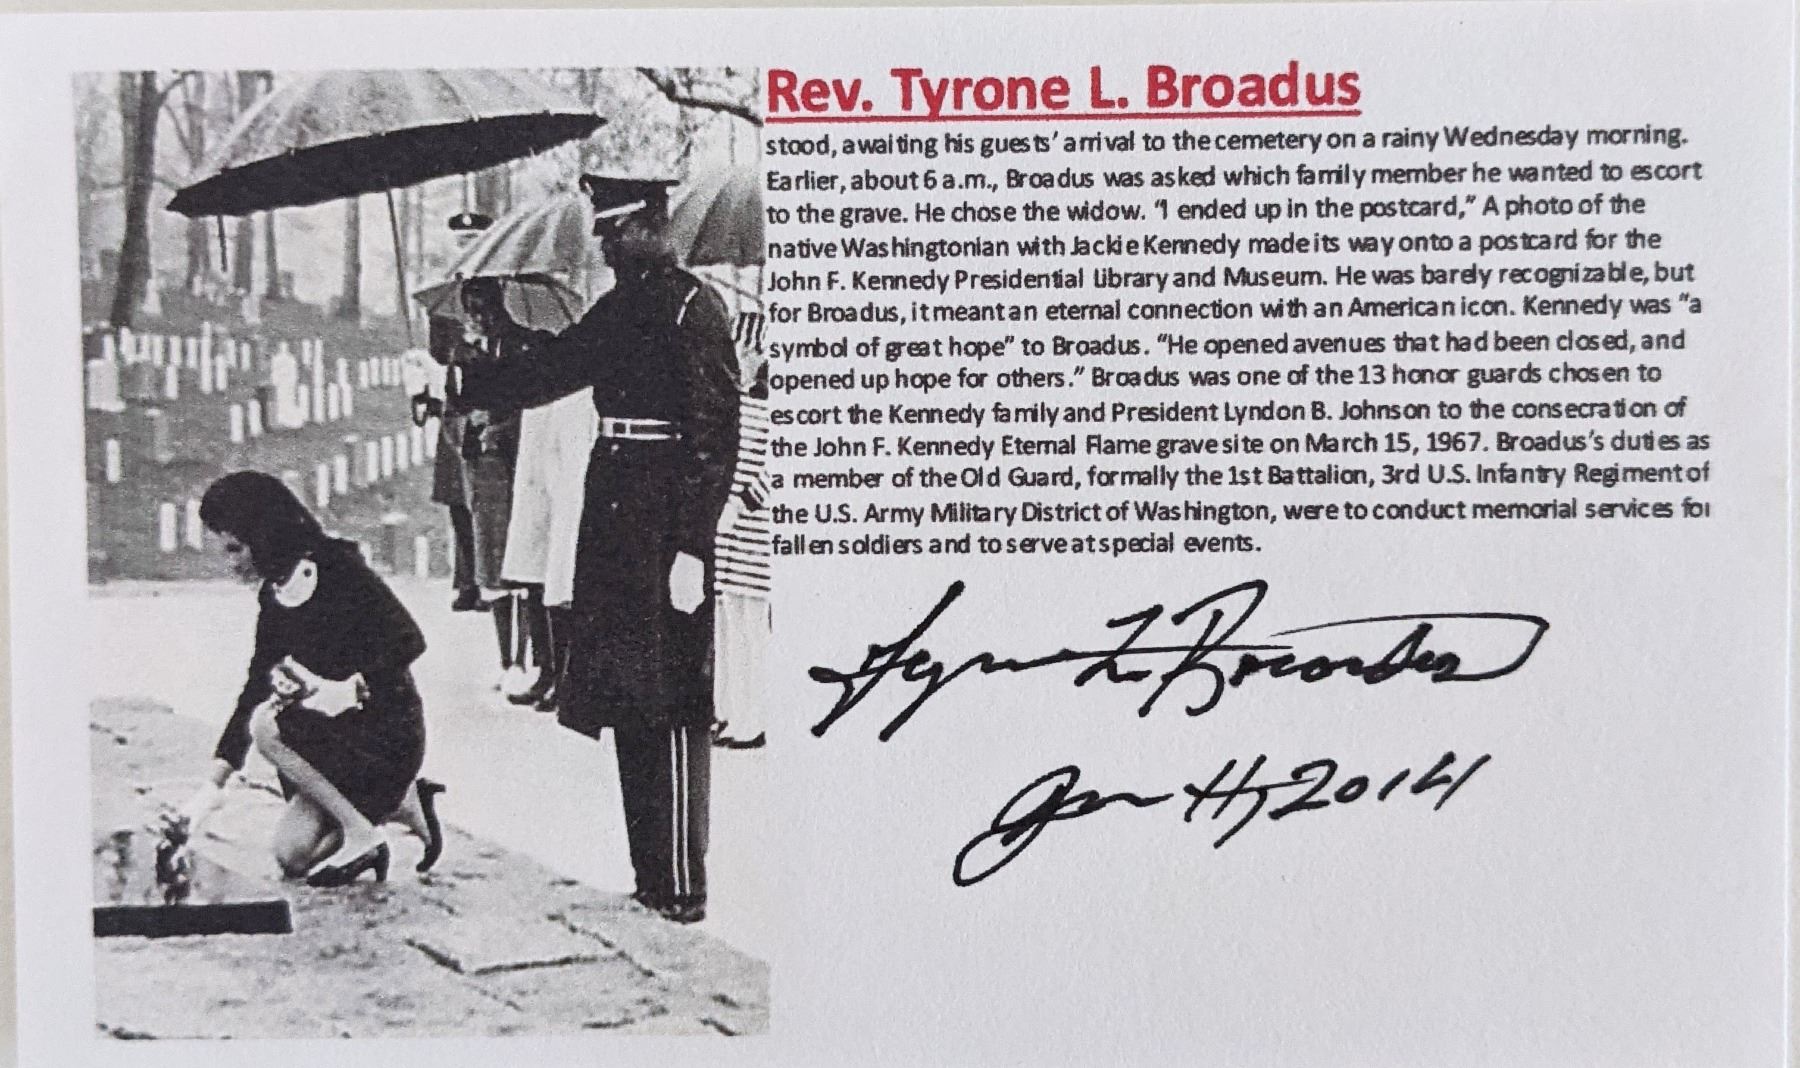 Rev. Tyrone L. Broadus
stood, awaiting his guests' arrival to the cemetery on a rainy Wednesday morning.
Earlier, about 6 a.m., Broadus was asked which family member he wanted to escort
to the grave. He chose the widow. "I ended up in the postcard," A photo of the
native Washingtonian with Jackie Kennedy made its way onto a postcard for the
John F. Kennedy Presidential Library and Museum. He was barely recognizable, but
for Broadus, it meant an eternal connection with an American icon. Kennedy was "a
symbol of great hope" to Broadus. "He opened avenues that had been closed, and
opened up hope for others." Broadus was one of the 13 honor guards chosen to
escort the Kennedy family and President Lyndon B. Johnson to the consecration of
the John F. Kennedy Eternal Flame gravesite on March 15, 1967. Broadus's duties as
a member of the Old Guard, formally the 1st Battalion, 3rd U.S. Infantry Regiment of
the U.S. Army Military District of Washington, were to conduct memorial services for
fallen soldiers and to serve at special events.
Tyrone L. Broadus
2014